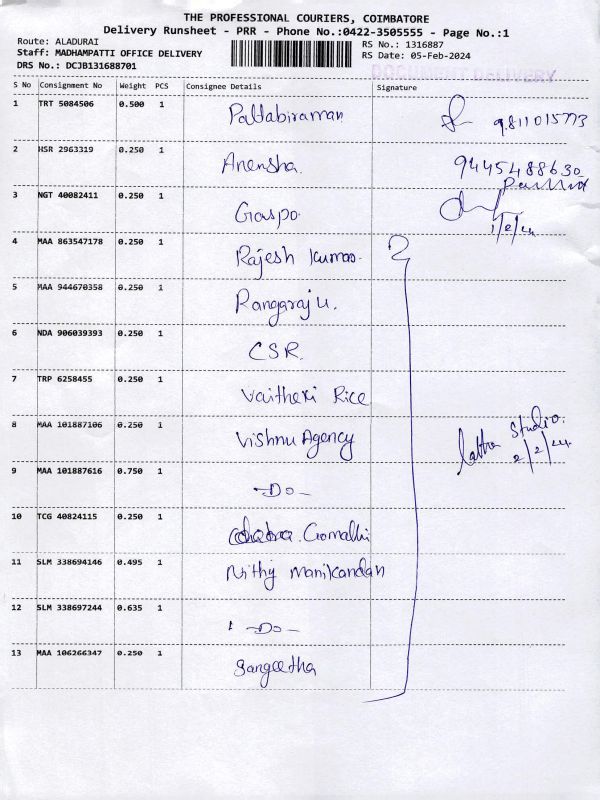 THE PROFESSIONAL COURIERS, COIMBATORE
Delivery Runsheet - PRR - Phone No.:0422-3505555 - Page No.:1
Route: ALADURAI
Staff: MADHAMPATTI OFFICE DELIVERY
DRS No.: DCJB131688701
RS No.: 1316887
RS Date: 05-Feb-2024
DELIVERY
S No Consignment No Weight PCS Consignee Details Signature
1 TRT 5084506 0.500 1 Pattabiraman 9811015773
2 HSR 2963319 0.250 1 Anensha. 9445488630
3 NGT 40082411 0.250 1 Gaspo
4 MAA 863547178 0.250 1 Rajesh Kumar
5 MAA 944670358 0.250 1 Rangaraj u.
6 NDA 906039393 0.250 1 CSR.
7 TRP 6258455 0.250 1 Vaitheki Rice
8 MAA 101887106 0.250 1 Vishnu Agency Studio. 2/2/24
9 MAA 101887616 0.750 1 -Do-
10 TCG 40824115 0.250 1 Gomathi
11 SLM 338694146 0.495 1 Nithy Manikandan
12 SLM 338697244 0.635 1 -Do-
13 MAA 106266347 0.250 1 Sangeetha